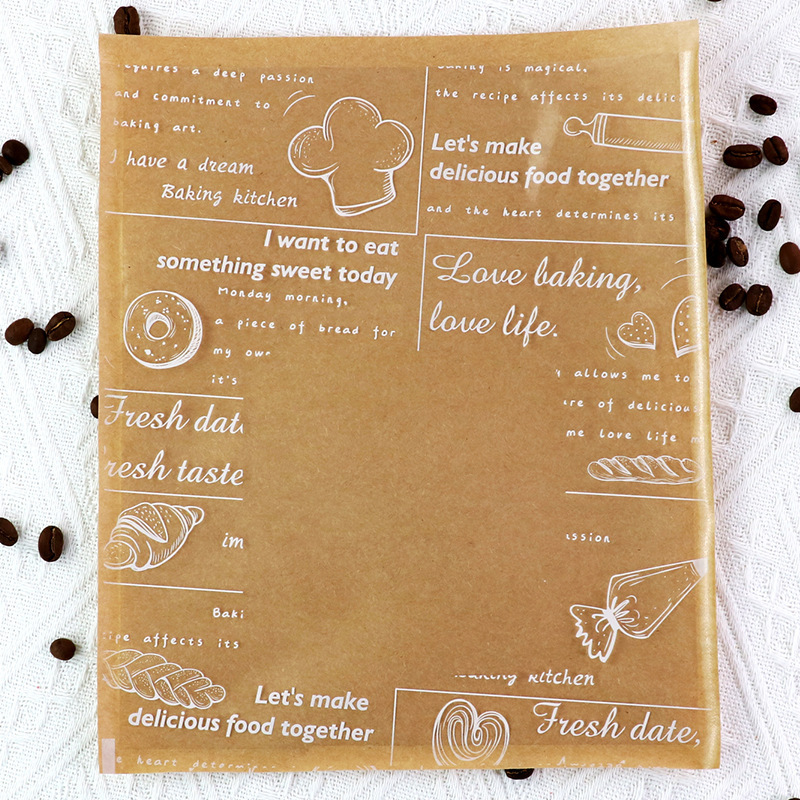 requires a deep passion
and commitment to
baking art.
I have a dream
Baking kitchen
baking is magical.
the recipe affects its
Let's make
delicious food together
and the heart determines its
I want to eat
something sweet today
Monday morning,
a piece of bread for
my own
it's
Love baking,
love life.
allows me to
of delicious
me love life
Fresh date
Fresh taste
im
ssion
Baki
affects its
Baking kitchen
Let's make
delicious food together
Fresh date,
heart